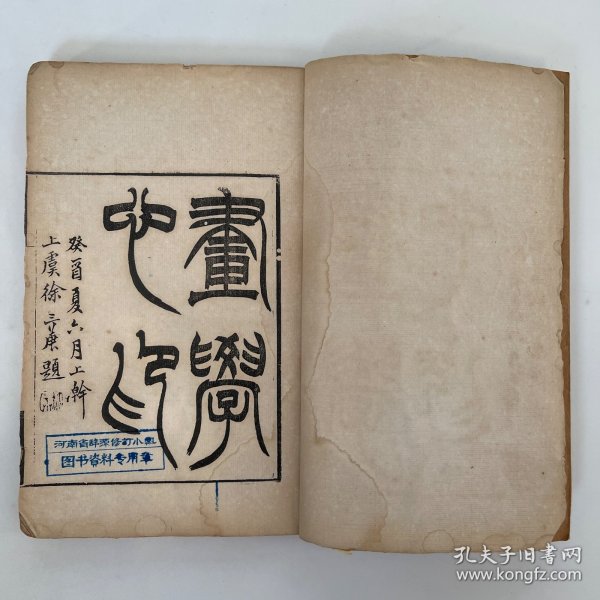 畫學
心印
癸酉夏六月上澣
上虞徐三庚題
河南省辞源修订小组
图书资料专用章
孔夫子旧书网
www.kongfz.com